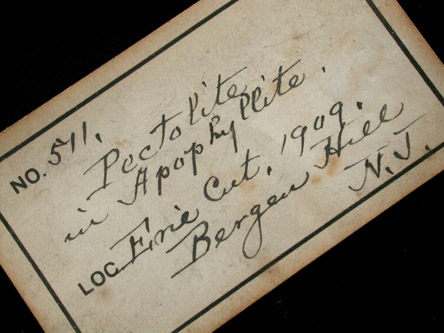 NO. 571.
Pectolite
in Apophyllite.
LOC. Erie Cut. 1909.
Bergen Hill
N.J.